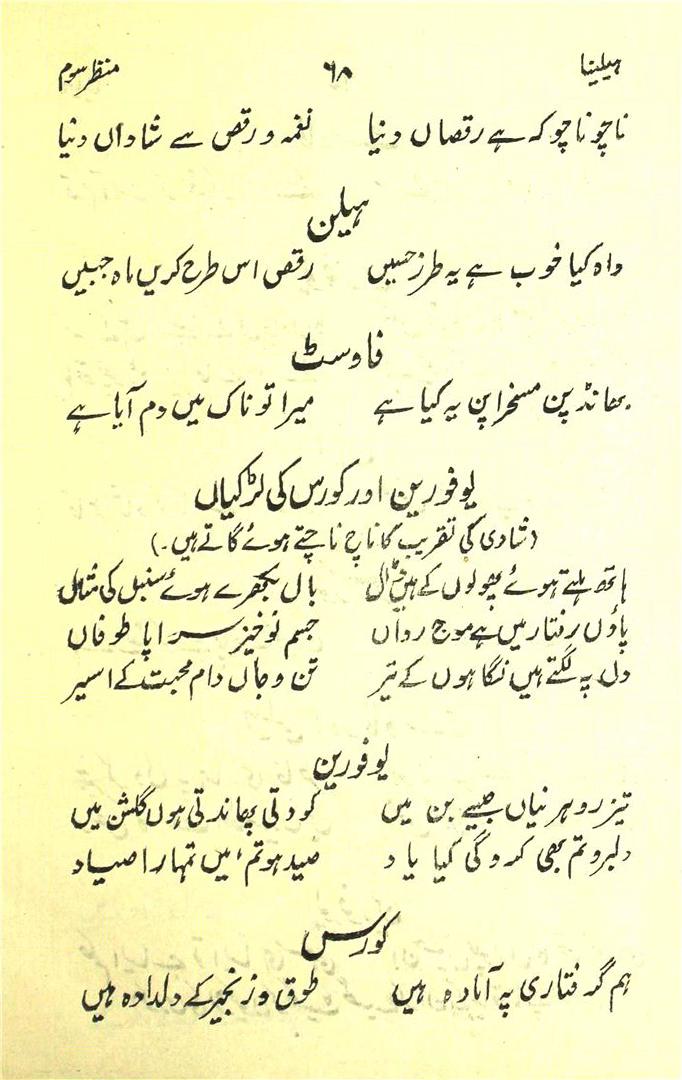 ہیلینا ۶۸ منظر سوم
ناچو ناچو کہ ہے رقصاں دنیا نغمہ و رقص سے شاداں دنیا
ہیلن
واہ کیا خوب ہے یہ طرز حسیں رقص اس طرح کریں ماہ جبیں
فاوسٹ
بھانڈپن مسخراپن یہ کیا ہے میرا تو ناک میں دم آیا ہے
یوفورین اور کورس کی لڑکیاں
(شادی کی تقریب کا ناچ ناچتے ہوئے گاتے ہیں۔)
ہاتھ ہلتے ہوئے پھولوں کے ہیں ڈال بال بکھرے ہوئے سنبل کی مثال
پاؤں رفتار میں ہے موج رواں جسم نوخیز سراپا طوفاں
دل پہ لگتے ہیں نگاہوں کے تیر تن و جاں دام محبت کے اسیر
یوفورین
تیز رو ہرنیاں جیسے بن میں کودتی پھاندتی ہوں گلشن میں
دلبرو تم بھی کرو گی کیا یاد صید ہو تم، میں تمہارا صیاد
کورس
ہم گرفتاری پہ آمادہ ہیں طوق و زنجیر کے دلدادہ ہیں